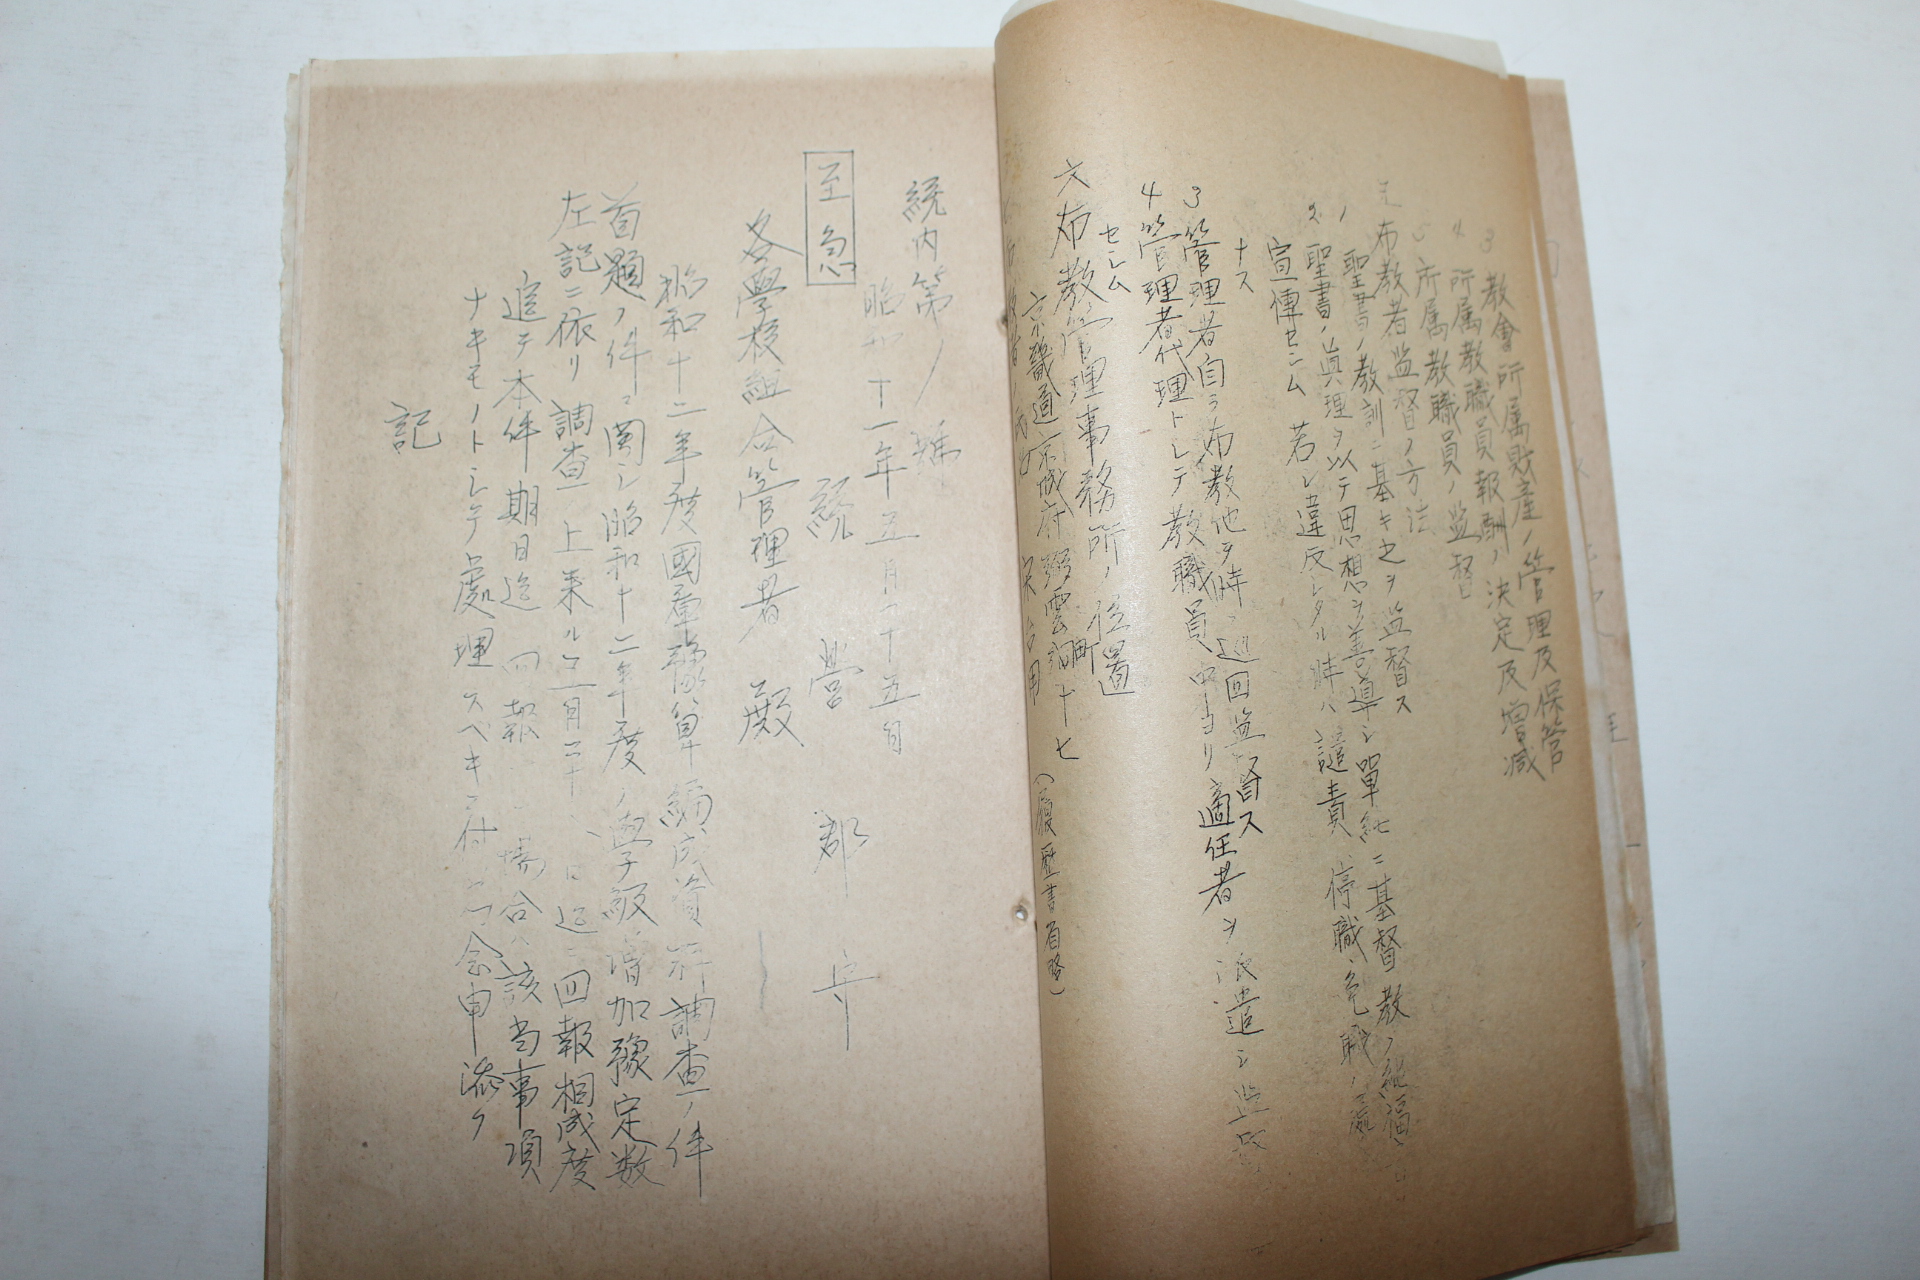 3 教會所属財産ノ管理及保管
4 所属教職員報酬ノ決定及増減
5 所属教職員ノ監督
布教者監督ノ方法
1 聖書ノ教訓ニ基キ之ヲ監督ス
2 聖書ノ眞理ヲ以テ思想ヲ善導シ單純ニ基督教ノ福
宣傳セシム 若シ違反シタル時ハ譴責 停職、免職ノ
ナス
3 管理者自ラ布教他ヲ時々巡回監督ス
4 管理者代理トシテ教職員中ヨリ適任者ヲ派遣シ監督
セシム
六 布教管理事務所ノ位置
京畿道京城府 雲洞町十七 (履歴書省略)
統内第ノ 號
昭和十一年五月二十五日
至急
統營郡守
各學校組合管理者 殿
昭和十二年度國庫豫算編成資料調査ノ件
首題ノ件ニ関シ昭和十二年度ノ學級増加豫定数
左記ニ依リ調査ノ上来ル 月二十 日迄ニ回報相成度
追テ本件期日迄 回報 場合ハ該当事項
ナキモノトシテ處理スベキニ付 念申添フ
記